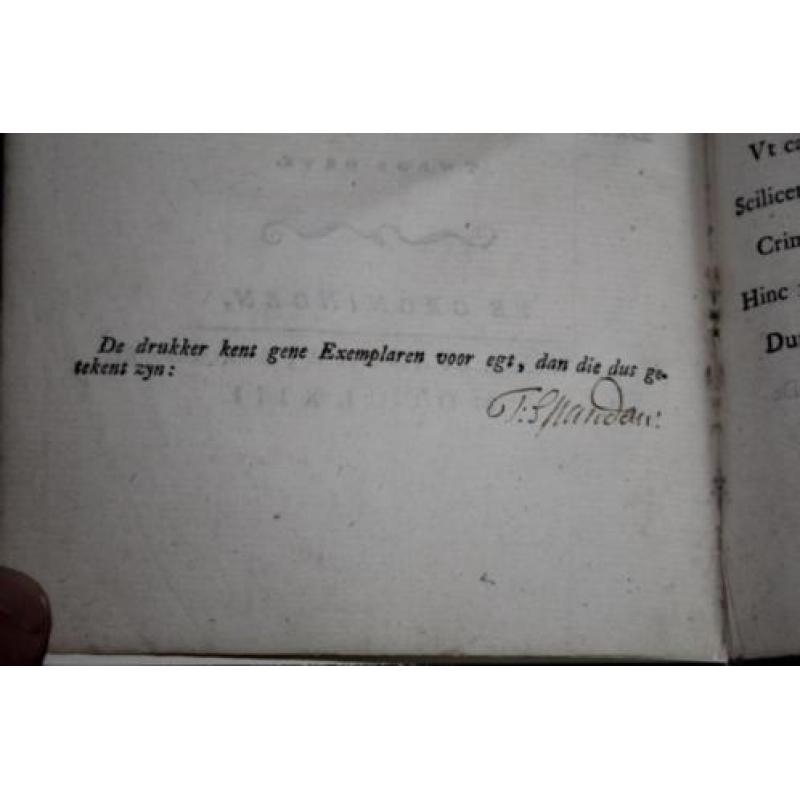 De drukker kent gene Exemplaren voor egt, dan die dus ge-
tekent zyn:
T: Spandaw:
Vt
Scilicet
Hinc